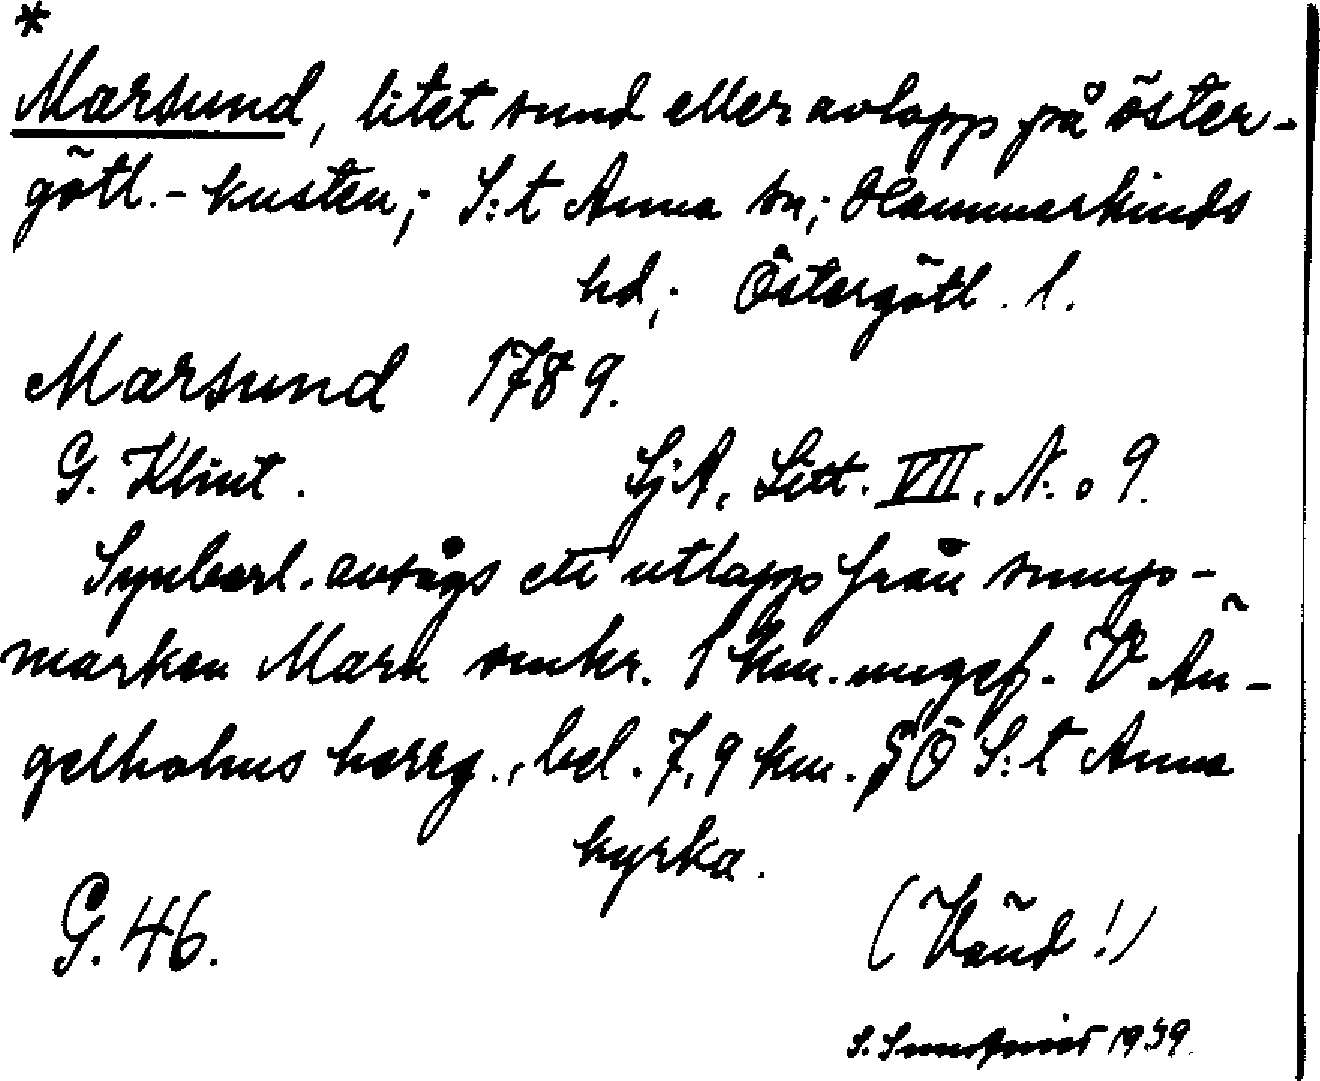 *
Marsund, litet sund eller avlopp på öster-
götl.-kusten; S:t Anna sn; Hammarkinds
hd; Östergötl. l.
Marsund 1789.
G. Klint. SjA, Litt. VII, N.o 9.
Synbarl. avsågs ett utlopp från sump-
marken Marn omkr. 1 km. ungef. V Än-
gelholms herrg., bel. 7,9 km. SÖ S:t Anna
kyrka.
G. 46. (Vänd!)
S. 1939.